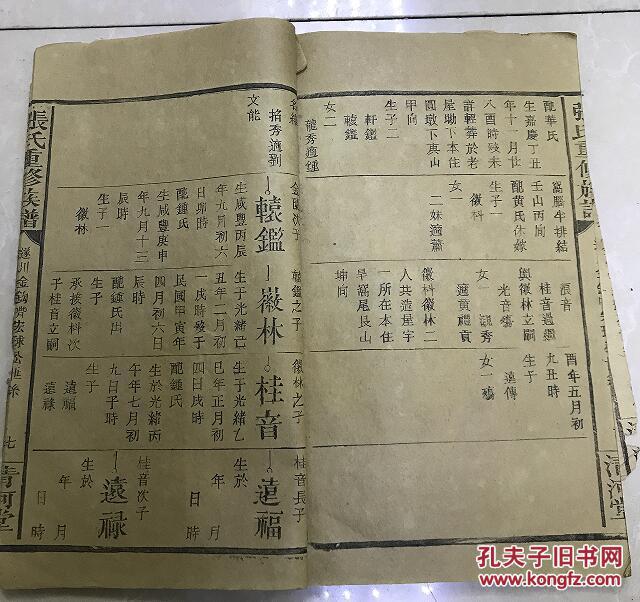 張氏重修族譜
清河堂
配華氏
生嘉慶丁丑
年十一月廿
八酉時歿未
詳輕葬於老
屋坳下本住
圓墩下艮山
甲向
生子二
軒鑑
轅鑑
女二
龍秀適鍾
窩腦牛排結
壬山丙向
配黃氏休嫁
生子一
徽科
女一
二妹適蕭
音
桂音過繼
與徽林立嗣
光音殤
女一 觀秀
適黃禮貢
徽科徽林二
人共造呈字
一所在本住
旱窩尾艮山
坤向
酉年五月初
九丑時
生子
遠傳
女一殤
招秀適劉
文能
金國次子
轅鑑
生咸豐丙辰
年九月初六
日卯時
配鍾氏
生咸豐庚申
年九月十三
辰時
生子一
徽林
轅鑑之子
徽林
生于光緒己
丑年二月初
一戌時歿于
民國甲寅年
四月初六日
辰時
配鍾氏出
生子
承接徽科次
子桂音立嗣
徽林之子
桂音
生于光緒乙
巳年正月初
四日戌時
配鍾氏
生於光緒丙
午年七月初
九日子時
生子
遠福
遠祿
桂音長子
遠福
生於
年 月
日 時
桂音次子
遠祿
生於
年 月
日 時
張氏重修族譜
遂川金
七
清河堂
孔夫子旧书网
www.kongfz.com